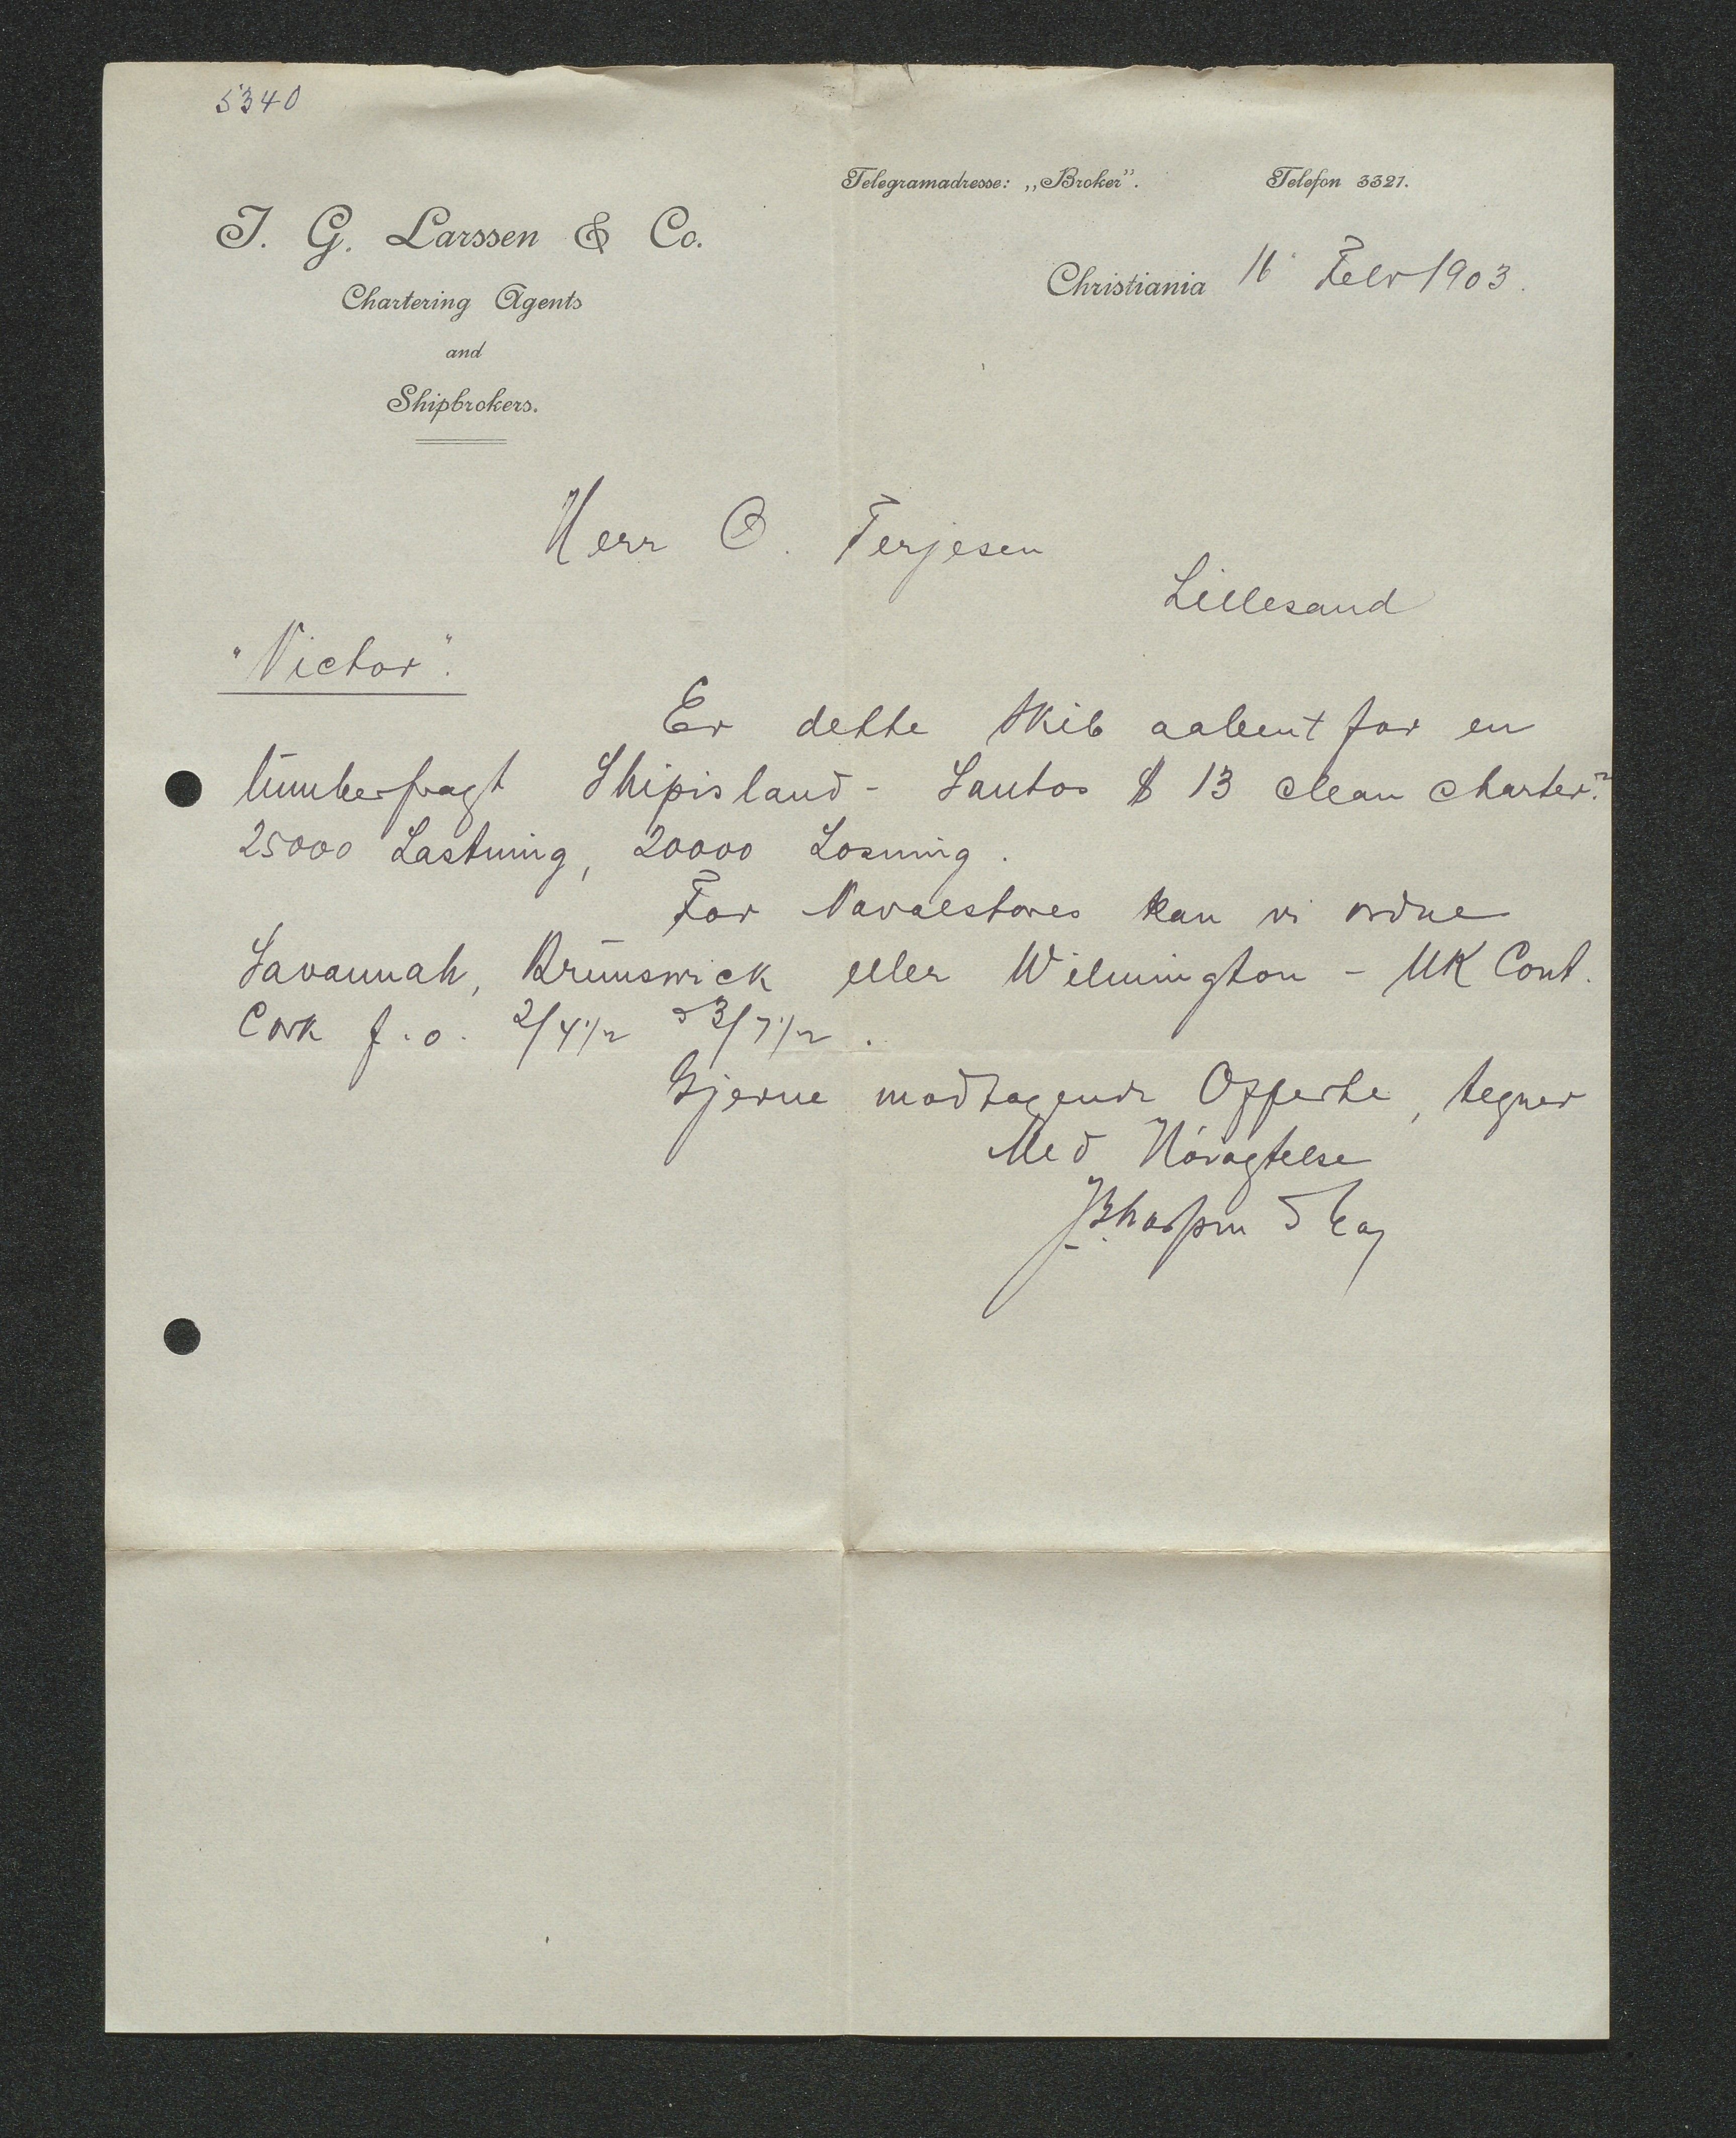 5340
Telegramadresse: „Broker”. Telefon 3321.
J. G. Larssen & Co.
Chartering Agents
and
Shipbrokers.
Christiania 16 Febr 1903.
Herr O. Terjesen
Lillesand
"Victor".
Er dette Skib aabent for en
lumberfragt Shipisland - Santos $ 13 clean charter?
25000 Lastning, 20000 Losning.
For Navalstores kan vi ordne
Savannah, Brunswick eller Wilmington - UK Cont.
Cork f. o. 2/4 1/2 & 3/7 1/2.
Gjerne modtagende Offerte, tegner
Med Höiagtelse